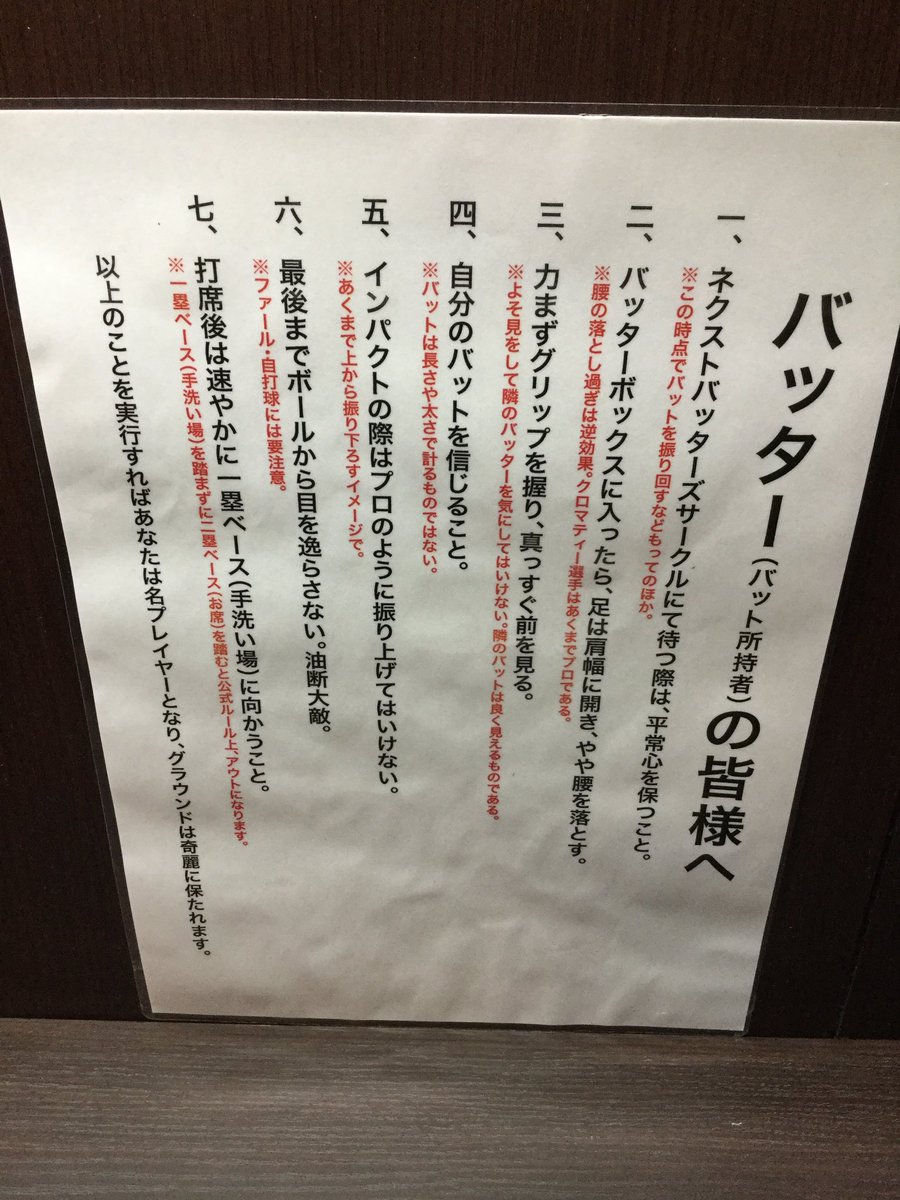 バッター(バット所持者)の皆様へ
一、ネクストバッターズサークルにて待つ際は、平常心を保つこと。
※この時点でバットを振り回すなどもってのほか。
二、バッターボックスに入ったら、足は肩幅に開き、やや腰を落とす。
※腰の落とし過ぎは逆効果。クロマティー選手はあくまでプロである。
三、力まずグリップを握り、真っすぐ前を見る。
※よそ見をして隣のバッターを気にしてはいけない。隣のバットは良く見えるものである。
四、自分のバットを信じること。
※バットは長さや太さで計るものではない。
五、インパクトの際はプロのように振り上げてはいけない。
※あくまで上から振り下ろすイメージで。
六、最後までボールから目を逸らさない。油断大敵。
※ファール・自打球には要注意。
七、打席後は速やかに一塁ベース(手洗い場)に向かうこと。
※一塁ベース(手洗い場)を踏まずに二塁ベース(お席)を踏むと公式ルール上、アウトになります。
以上のことを実行すればあなたは名プレイヤーとなり、グラウンドは奇麗に保たれます。